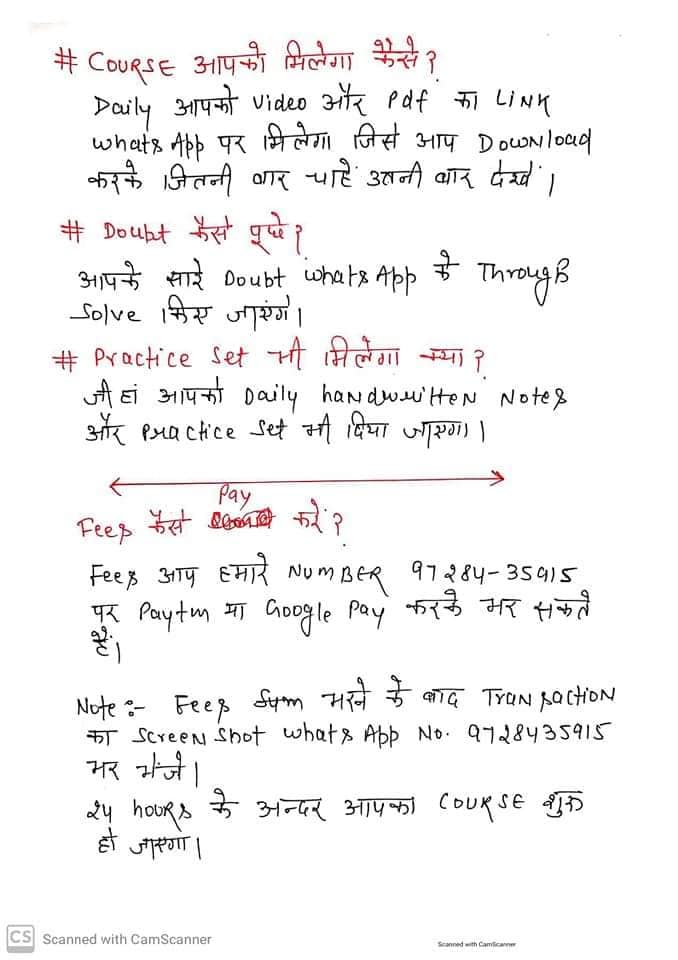 # COURSE आपको मिलेगा कैसे?
Daily आपको Video और Pdf का LINK
whatsApp पर मिलेगा जिसे आप Download
करके जितनी बार चाहें उतनी बार देखें।
# Doubt कैसे पूछे?
आपके सारे Doubt whatsApp के Through
Solve किए जाएंगे।
# Practice Set भी मिलेगा क्या?
जी हां आपको Daily handwritten Notes
और Practice Set भी दिया जाएगा।
Pay
Fees कैसे करें?
Fees आप हमारे NUMBER 97284-35915
पर Paytm या Google Pay करके भर सकते
हैं।
Note :- Fees भरने के बाद TRANSACTION
का SCREEN Shot whatsApp No. 9728435915
पर भेजें।
24 hours के अन्दर आपका COURSE शुरू
हो जाएगा।
CS Scanned with CamScanner
Scanned with CamScanner